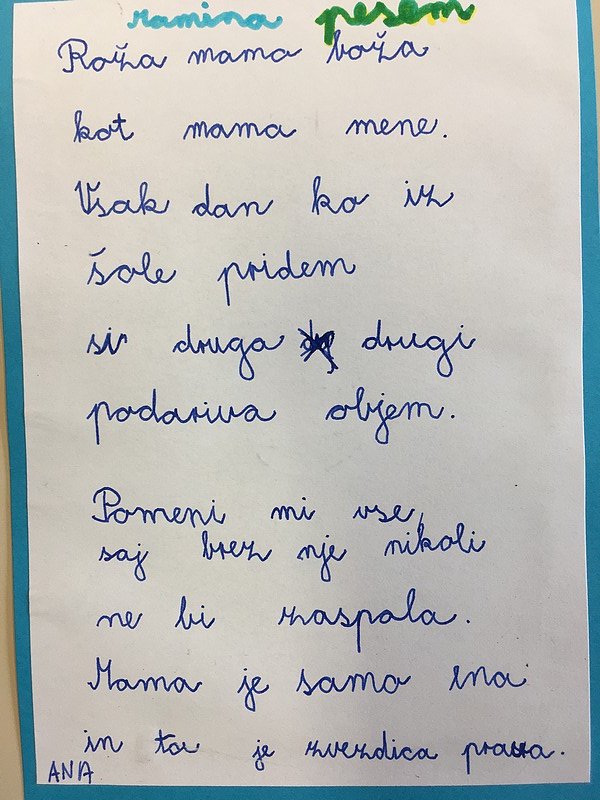 ramina pesem
Roža mama boža
kot mama mene.
Vsak dan ko iz
šole pridem
si druga drugi
podariva objem.
Pomeni mi vse,
saj brez nje nikoli
ne bi zaspala.
Mama je samo ena
in ta je zvezdica prava.
ANA